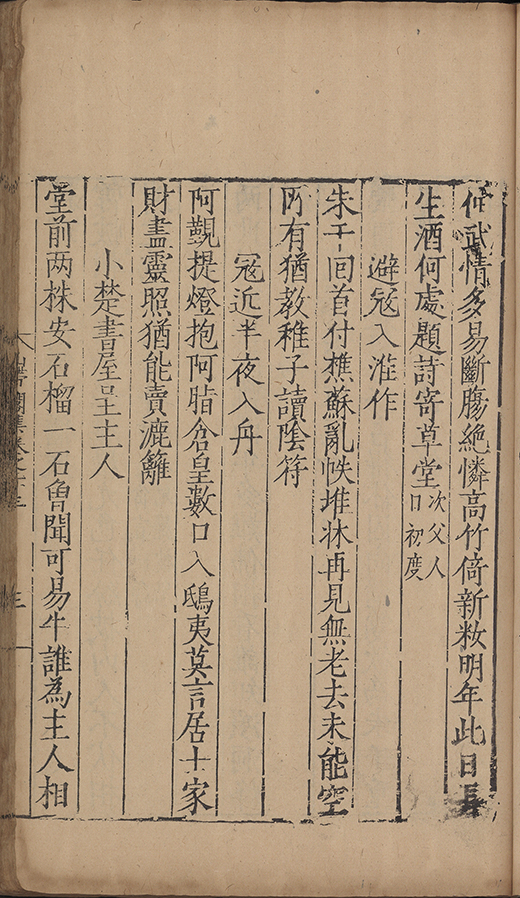 武情多易斷膓絶憐高竹倚新籹明年此日長
生酒何處題詩寄草堂 次父人初度
避冦入淮作
朱回首付樵蘇亂帙堆牀再見無老去未能空
所有猶教稚子讀陰符
冦近半夜入舟
阿覲提燈抱阿脂倉皇數口入鴟夷莫言居士家
財盡靈照猶能賣漉籬
小楚書屋呈主人
堂前两株安石榴一石魯聞可易牛誰為主人相
山帶閣集卷之十三
三